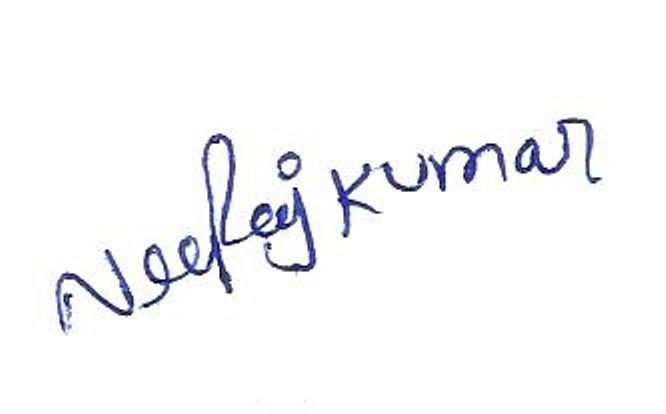 Neeraj Kumar